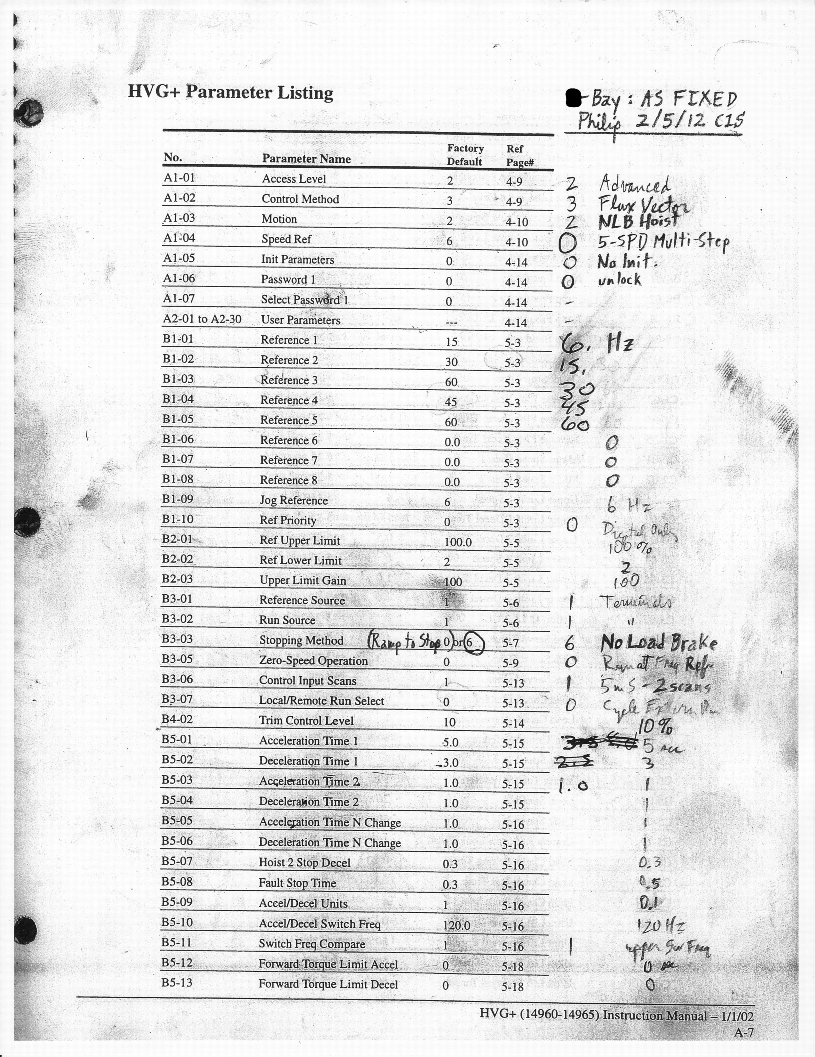 HVG+ Parameter Listing
Bay : AS FIXED
Philip 2/5/12 C15
No. Parameter Name Factory Default Ref Page#
A1-01 Access Level 2 4-9 2 Advanced
A1-02 Control Method 3 4-9 3 Flux Vector
A1-03 Motion 2 4-10 2 NLB Hoist
A1-04 Speed Ref 6 4-10 0 5-SPD Multi-Step
A1-05 Init Parameters 0 4-14 0 No Init.
A1-06 Password 1 0 4-14 0 unlock
A1-07 Select Password 1 0 4-14 -
A2-01 to A2-30 User Parameters --- 4-14 -
B1-01 Reference 1 15 5-3 6. Hz
B1-02 Reference 2 30 5-3 15.
B1-03 Reference 3 60 5-3 30
B1-04 Reference 4 45 5-3 45
B1-05 Reference 5 60 5-3 60
B1-06 Reference 6 0.0 5-3 0
B1-07 Reference 7 0.0 5-3 0
B1-08 Reference 8 0.0 5-3 0
B1-09 Jog Reference 6 5-3 6 Hz
B1-10 Ref Priority 0 5-3 0 Digital Only
B2-01 Ref Upper Limit 100.0 5-5 100 %
B2-02 Ref Lower Limit 2 5-5 2
B2-03 Upper Limit Gain 100 5-5 100
B3-01 Reference Source 1 5-6 1 Terminals
B3-02 Run Source 1 5-6 1 "
B3-03 Stopping Method (Ramp to Stop 0) or 6 5-7 6 No Load Brake
B3-05 Zero-Speed Operation 0 5-9 0 Run at Freq Ref
B3-06 Control Input Scans 1 5-13 1 5mS - 2scans
B3-07 Local/Remote Run Select 0 5-13 0 Cycle Extern Run
B4-02 Trim Control Level 10 5-14 10%
B5-01 Acceleration Time 1 5.0 5-15 5 sec
B5-02 Deceleration Time 1 3.0 5-15 2.5 3
B5-03 Acceleration Time 2 1.0 5-15 1.0 1
B5-04 Deceleration Time 2 1.0 5-15 1
B5-05 Acceleration Time N Change 1.0 5-16 1
B5-06 Deceleration Time N Change 1.0 5-16 1
B5-07 Hoist 2 Stop Decel 0.3 5-16 0.3
B5-08 Fault Stop Time 0.3 5-16 0.5
B5-09 Accel/Decel Units 1 5-16 0.1
B5-10 Accel/Decel Switch Freq 120.0 5-16 120 Hz
B5-11 Switch Freq Compare 1 5-16 1 upper Sw Freq
B5-12 Forward Torque Limit Accel 0 5-18 0
B5-13 Forward Torque Limit Decel 0 5-18 0
HVG+ (14960-14965) Instruction Manual – 1/1/02
A-7